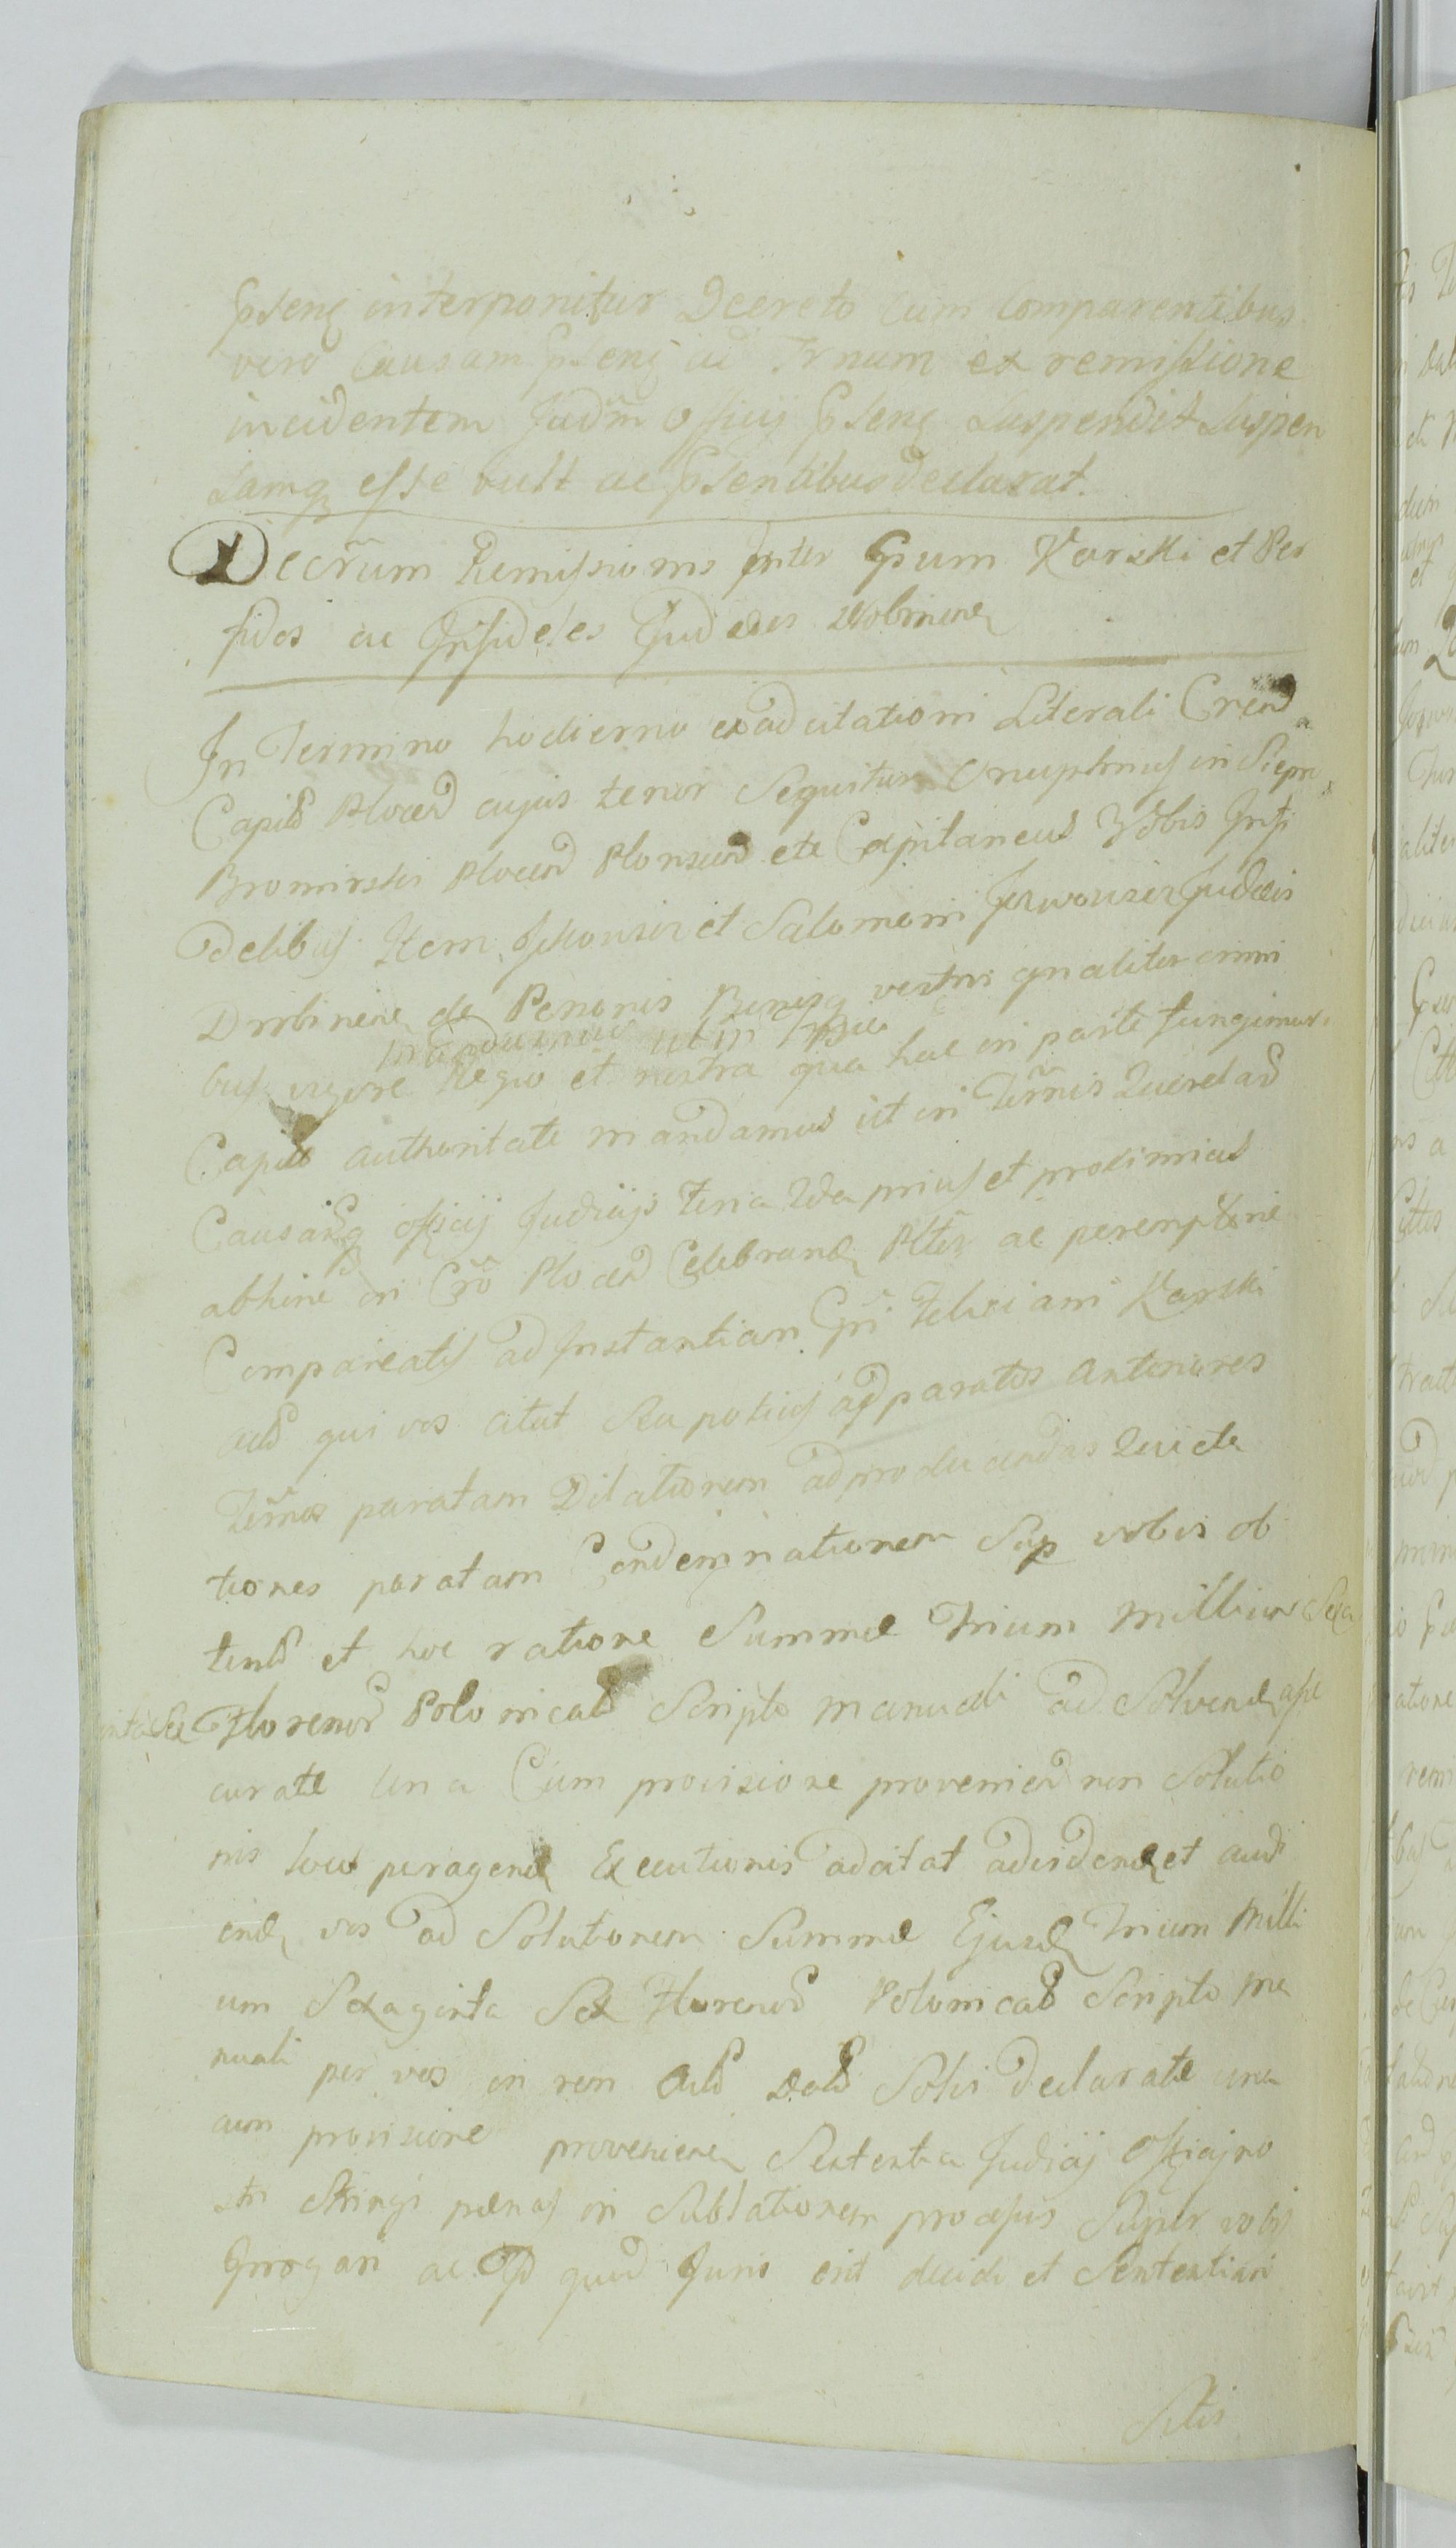 ꝑsenꝫ interponitur Decreto Cum Comparentibus
vero Causam ꝑsenꝫ ad Trnum ex remissione
incidentem Judm Officij ꝑsenꝫ Suspendit Suspen
samqꝫ esse vult ac ꝑsentibus declarat.
Decrum Remissionis Inter Gsum Karski et Per
fidos ac Infideles Judæos Drobinenꝫ
In Termino hodierno ex adcitationi Literali Crend
Capitł Plocen cujus tenor Sequitur Onuphrius in Siepn
Bromirski Plocen Plonscen etc Capitaneus Vobis Infi
delibus Item Jckowicz et Salomoni Judæis
Drobinenꝫ de Personis Bonisqꝫ vestri qualiter omni
bus vigore Regio et nostra qua hac in parte fungimur
Capitł authoritate mandamus ut in Trmis Querelar
Causarqꝫ officij Judicijs feria 2da prius et proximius
abhinc in Cro Plocen Celebranꝫ Plter ac peremptorie
Compareatis ad Instantiam Gsi Feliciani Karski
qui vos citat Seu potius ad paratos Anteriores
Trmos paratam Dilationem ad producendas Quieta
tiones paratam Condemnationem Sup vobis ob
tentł et hoc ratione Summæ Trium Millium Sexa
ginta Sex Florenor Polonicał Scripto manuali ad Solvendꝫ asse
curatæ una Cum provisione provenien non Solutio
nis loco peragendæ Executionis adcitat ad videndꝫ et audi
endꝫ vos ad Solutionem Summæ Ejusdꝫ Trium Milli
um Sexaginta Sex Florenor Polonicał Scripto ma
nuali per vos in rem Solvi declaratæ una
cum provisione provenienꝫ Sententia Judicij Officij no
stri Stringi pænas in Sublationem processus Super vobis
Irrogari ac Id quid Juris erit decidi et Sententiari
Sitis